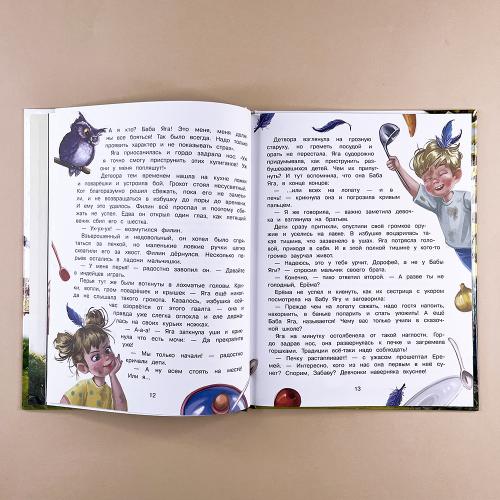 А я кто? Баба Яга! Это меня, меня должны
все бояться! Так было всегда. Надо только
проявить характер и не показывать страх.
Яга приосанилась и гордо задрала нос: «Уж
я точно смогу приструнить этих хулиганов! Ух
они у меня попляшут!»
Детвора тем временем нашла на кухне ложки
и поварёшки и устроила бой. Грохот стоял несусветный.
Кот благоразумно решил сбежать, пока его не замети-
ли, и не возвращаться в избушку до поры до времени.
И ему это удалось. Филин всё проспал и поэтому сбе-
жать не успел. Едва он открыл один глаз, как летящий
веник сбил его с шестка.
— Ух-ух-ух! — возмутился филин.
Взъерошенный и недовольный, он хотел было спря-
таться за печкой, но маленькие ловкие ручки цепко
схватили его за хвост. Филин дёрнулся. Несколько пе-
рьев остались в ладони мальчишки.
— У меня перья! — радостно завопил он. — Давайте
в индейцев играть.
Перья тут же были воткнуты в лохматые головы. Кри-
ки, вопли, гром поварёшек и крышек — Яга ещё никог-
да не слышала такого грохота. Казалось, избушка сей-
час взорвётся от этого гвалта — она и
правда уже слегка оглохла и еле держа-
лась на своих курьих ножках.
— А-а-а! — Яга заткнула уши и крик-
нула что есть мочи: — Да прекратите
уже!
— Мы только начали! — радостно
кричали дети.
— А ну всем стоять на месте!
Или я...
12
Детвора взглянула на грозную
старуху, но греметь посудой и
орать не перестала. Яга судорожно
придумывала, как приструнить раз-
бушевавшихся детей. Чем их припуг-
нуть? И тут вспомнила, что она Баба
Яга, в конце концов:
— ...или всех на лопату — и в
печь! — крикнула она и погрозила кривым
пальцем.
— Я же говорила, — важно заметила девоч-
ка и взглянула на братьев.
Дети сразу притихли, опустили своё громкое ору-
жие и уселись на лавке. В избушке воцарилась та-
кая тишина, что зазвенело в ушах. Яга потрясла голо-
вой, приходя в себя. И в этой полной тишине у кого-то
громко заурчал живот.
— Надеюсь, это у тебя урчит, Дорофей, а не у Бабы
Яги? — спросил мальчик своего брата.
— Конечно, — тихо ответил второй. — А разве ты не
голодный, Ерёма?
Ерёма не успел и кивнуть, как их сестрица с укором
посмотрела на Бабу Ягу и заговорила:
— Прежде чем на лопату сажать, надо гостя напоить,
накормить, в баньке попарить и спать уложить! А ещё
Баба Яга, называется! Чему вас только учили в сказоч-
ной школе?
Яга на минутку остолбенела от такой наглости. Гор-
до задрав нос, она развернулась к печке и загремела
горшками. Традиции всё-таки надо соблюдать!
— Печку растапливает! — с ужасом прошептал Ере-
мей. — Интересно, кого из нас она первым в нее су-
нет? Спорим, Забаву? Девчонки наверняка вкуснее!
13